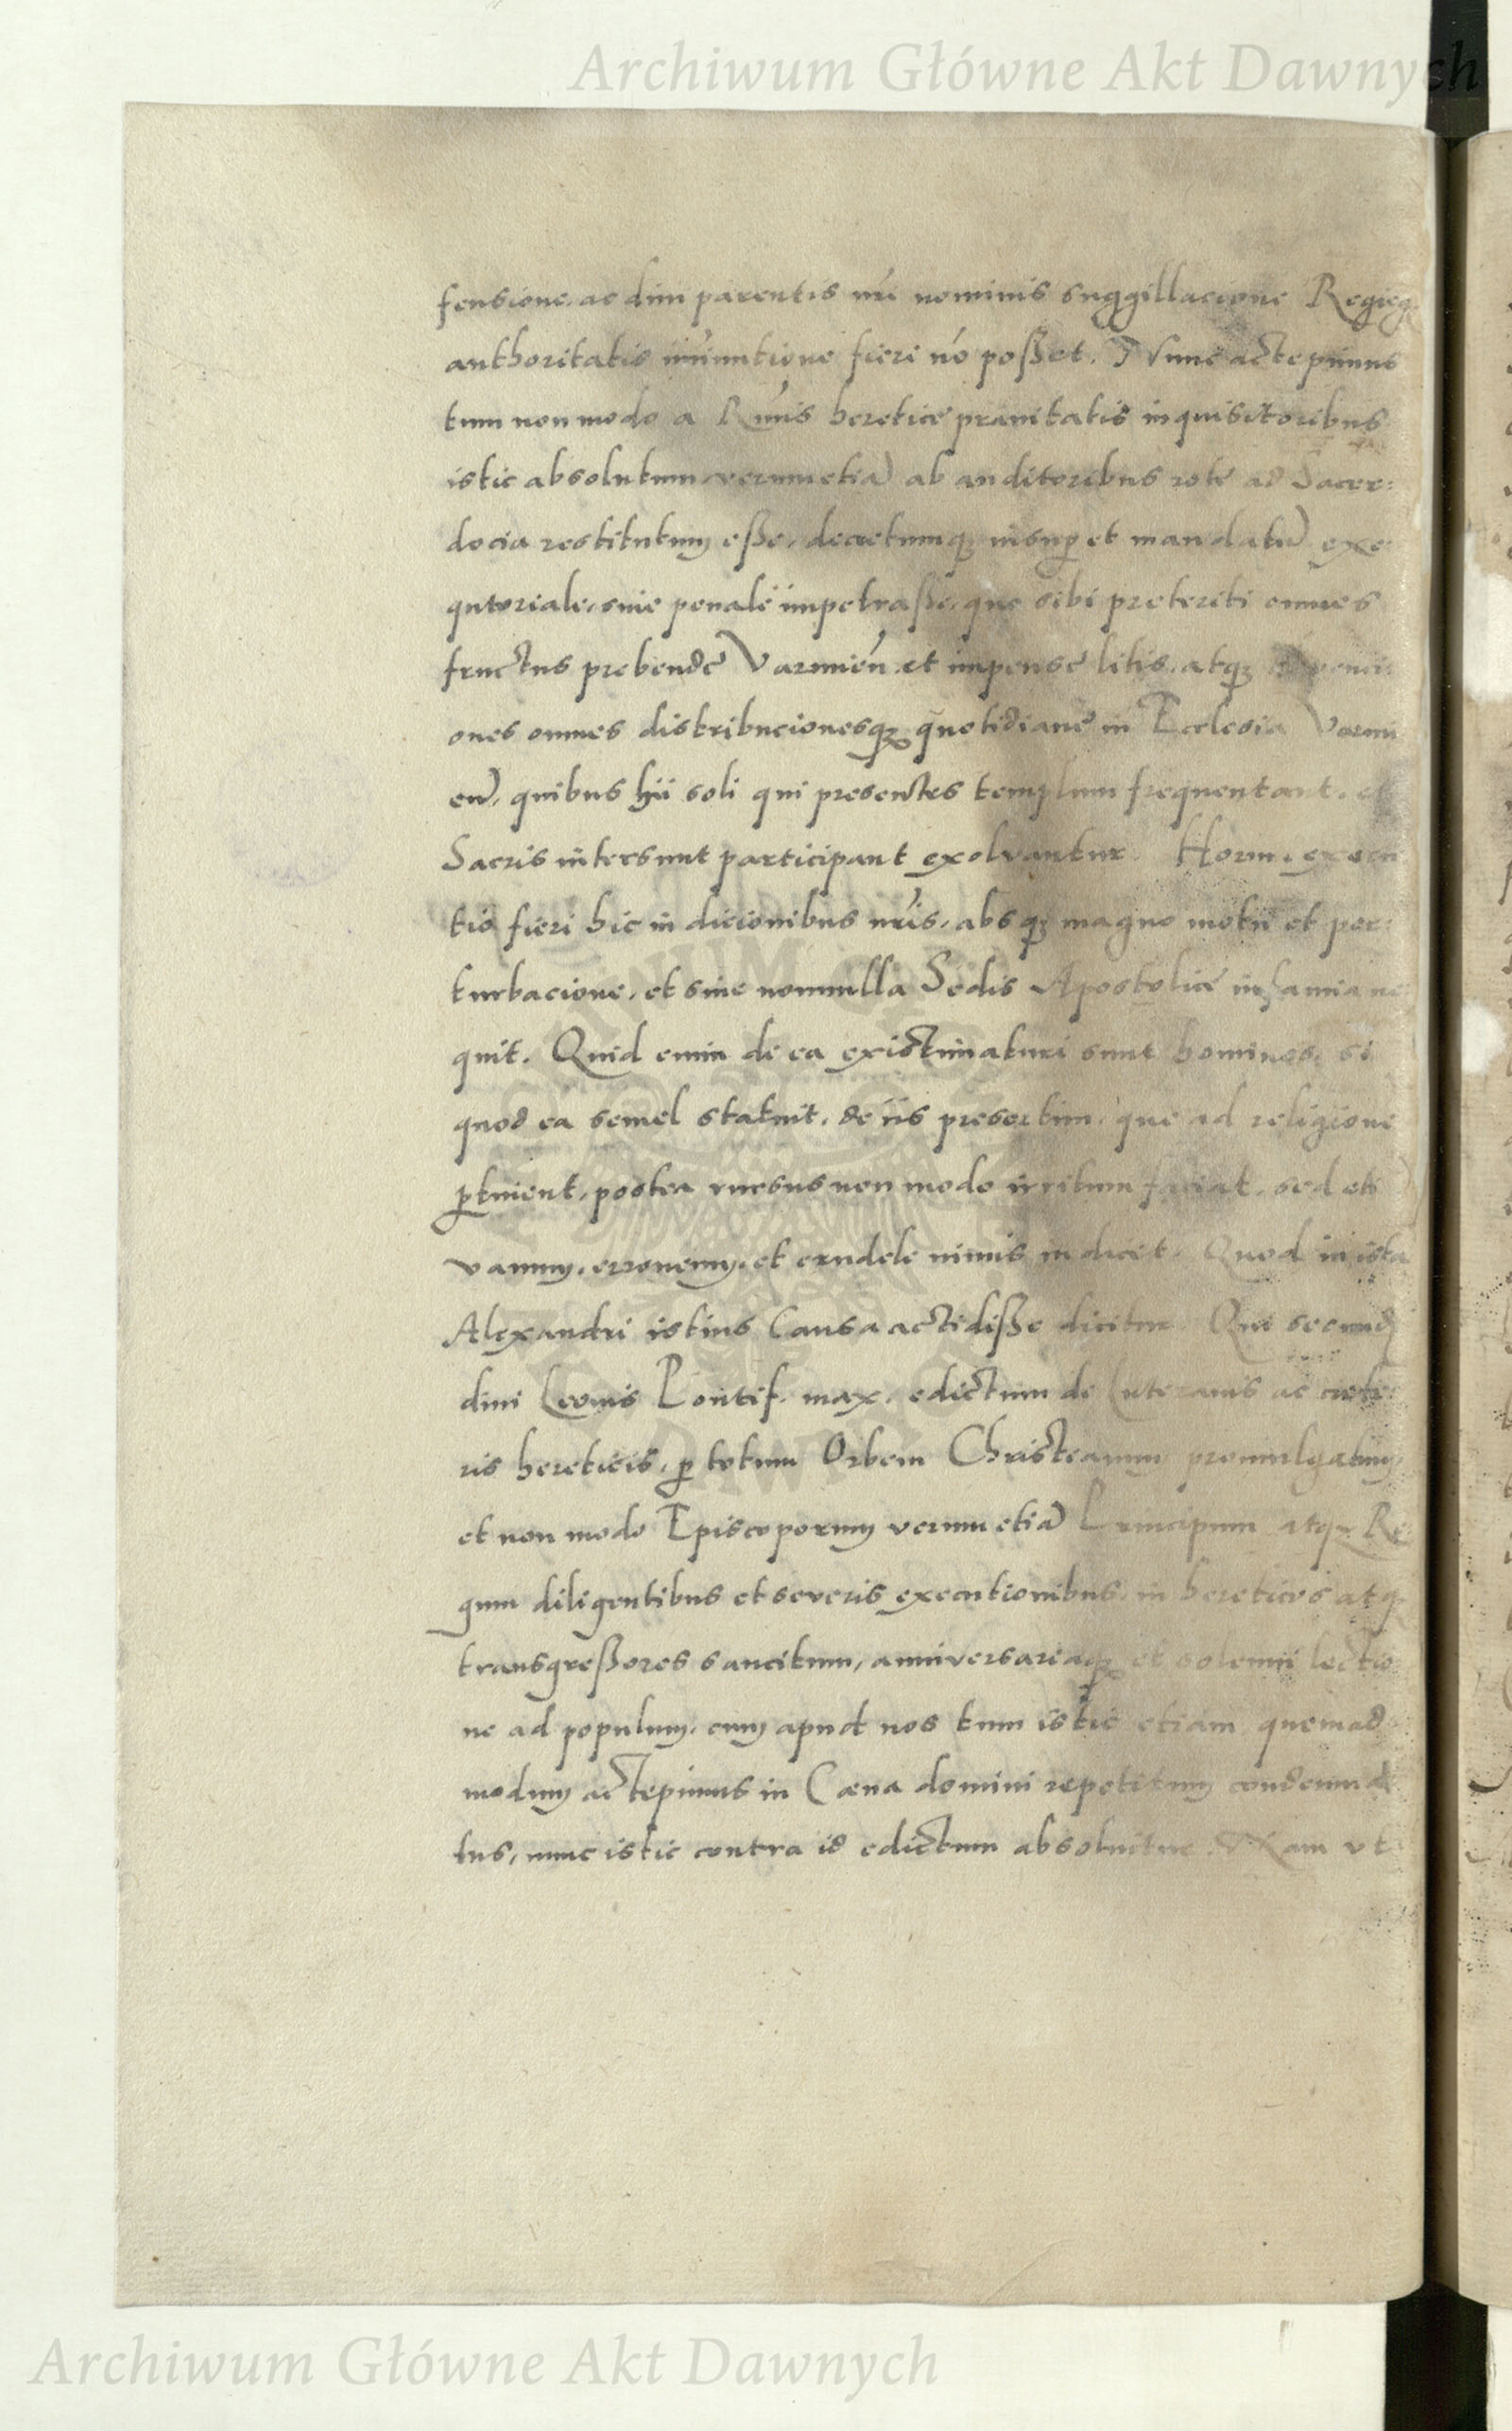 Archiwum Główne Akt Dawnych
fensione, ac divi parentis nri nominis suggillacione Regieq
authoritatis iminutione fieri nō posset. Nunc accepimus
tum non modo a Rmis heretice pravitatis inquisitoribus
istic absolutum verumetiā ab auditoribus rote ad Sacer:
docia restitutum esse, decretumq insup et mandatū exe:
qutoriale, sive penale impetrasse, quo sibi preteriti omnes
fructus prebende Varmien. et impense litis, atq
ones omnes distribucionesq quotidiane in Ecclesia Varmi
en, quibus hii soli qui presentes templum frequentant, et
Sacris intersunt participant exolvantur. Horum execu
tio fieri hic in dicionibus nris, absq magno motu et per:
turbacione, et sine nonnulla Sedis Apostolice infamia ne
quit. Quid enim de ea existimaturi sunt homines, si
quod ea semel statuit, de iis presertim, que ad religione
ptinent, postea rursus non modo irritum faciat, sed eti
vanum, erroneum, et crudele nimis indicet. Quod in ista
Alexandri istius Causa accidisse dicitur. Qui secund
divi Leonis Pontif. max. edictum de Luteranis ac cete:
ris hereticis, p totum Orbem Christianum promulgatum,
et non modo Episcoporum verumetiā Principum atq Re
gum diligentibus et severis executionibus in hereticos atq
transgressores sancitum, anniversariaq et solemni lectio
ne ad populum, cum apud nos tum istic etiam quemad
modum accepimus in Cæna domini repetitum condemna
tus, nunc istic contra id edictum absolvitur. Nam ut
Archiwum Główne Akt Dawnych